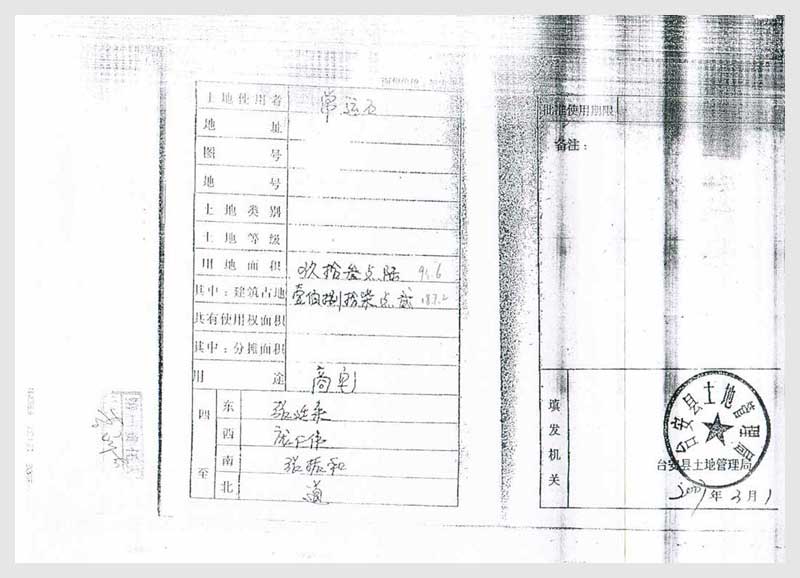 土地使用者 常运石
地址
图号
地号
土地类别
土地等级
用地面积 玖拾叁点陆 93.6
其中：建筑占地 壹佰捌拾柒点贰 187.2
共有使用权面积
其中：分摊面积
用途 商宅
四至
东 张廷来
西 庞仁伟
南 张振和
北 道
批准使用期限
备注：
填发机关
台安县土地管理局
台安县土地管理局
年3月1